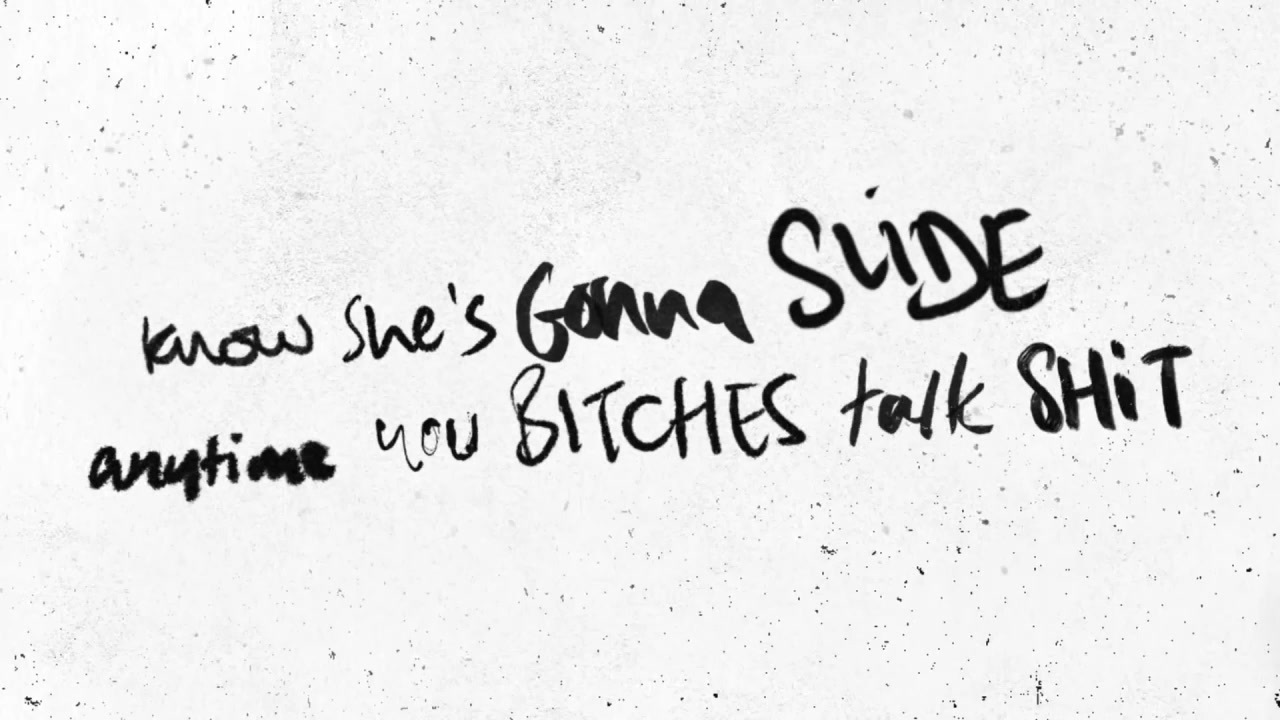 know She's Gonna SLiDE
anytime you BITCHES talk SHiT